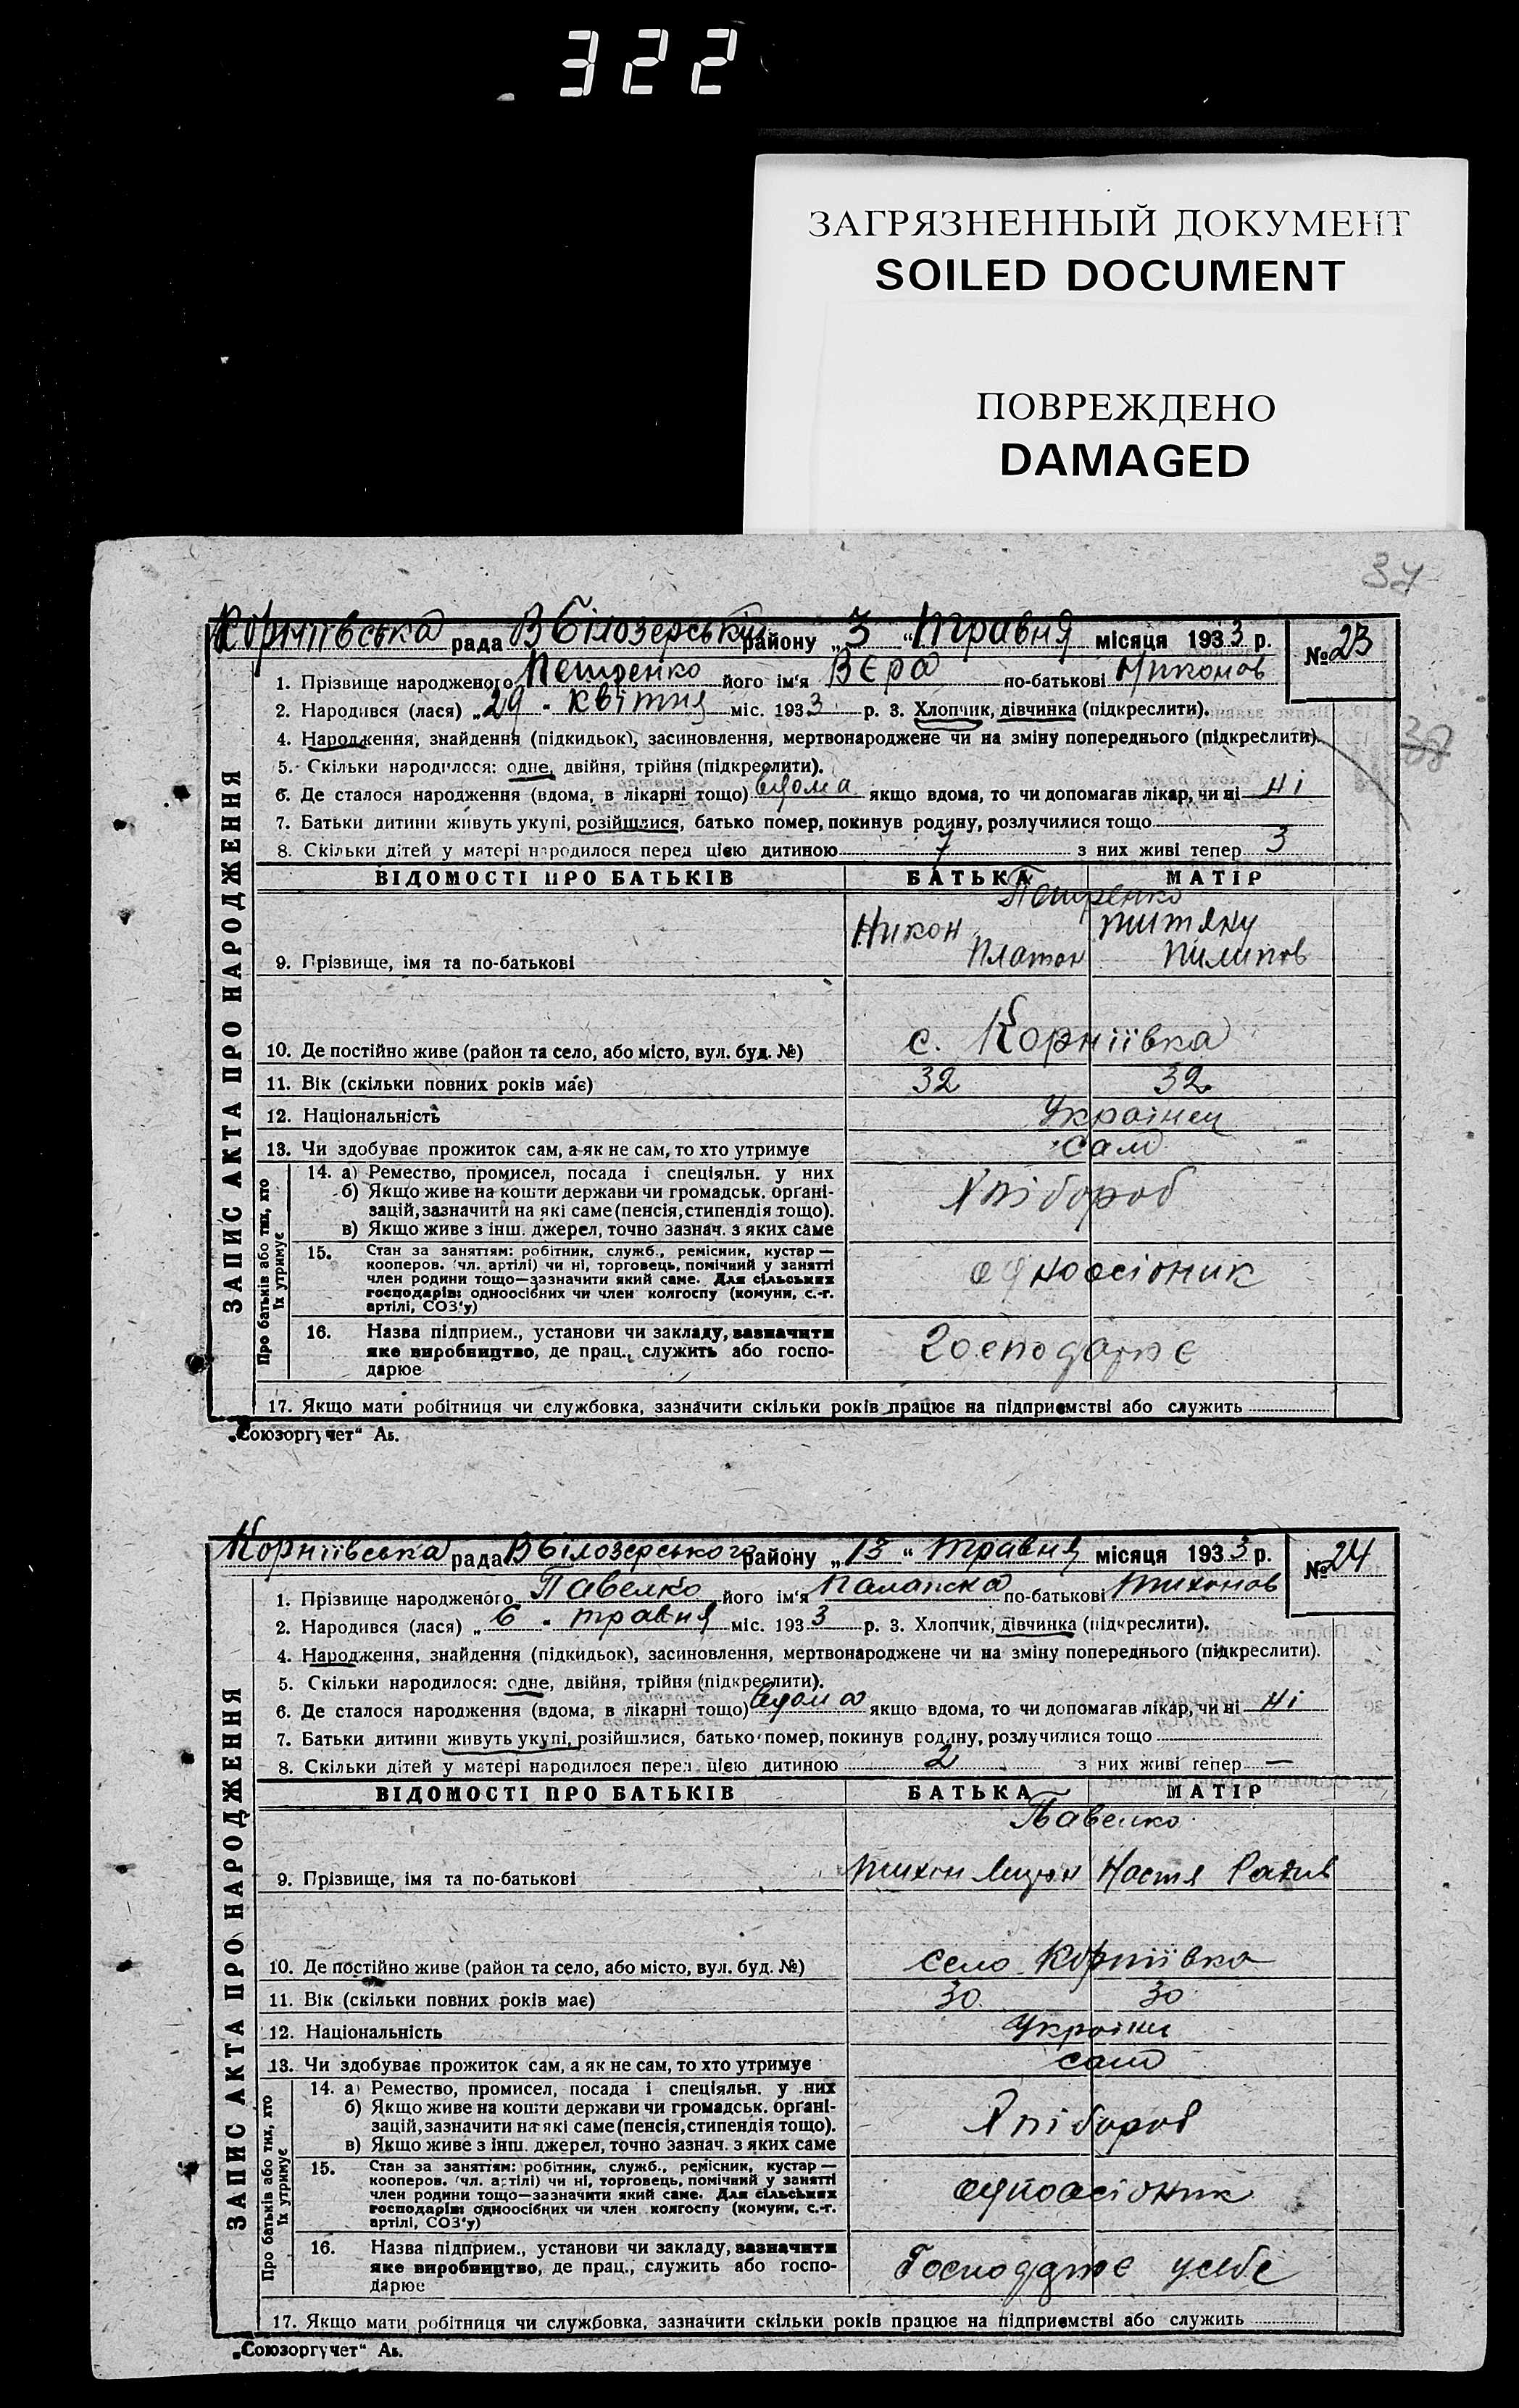 322
ЗАГРЯЗНЕННЫЙ ДОКУМЕНТ
SOILED DOCUMENT
ПОВРЕЖДЕНО
DAMAGED
37
38
ЗАПИС АКТА ПРО НАРОДЖЕННЯ
Корніївська рада В Білозерськ району „3“ травня місяця 1933 р. № 23
1. Прізвище народженого Петренко його ім'я Вєра по-батькові Никонов
2. Народився (лася) „29“ квітня міс. 1933 р. 3. Хлопчик, дівчинка (підкреслити).
4. Народження, знайдення (підкидьок), засиновлення, мертвонароджене чи на зміну попереднього (підкреслити).
5. Скільки народилося: одне, двійня, трійня (підкреслити).
6. Де сталося народження (вдома, в лікарні тощо) вдома якщо вдома, то чи допомагав лікар, чи ні ні
7. Батьки дитини живуть укупі, розійшлися, батько помер, покинув родину, розлучилися тощо
8. Скільки дітей у матері народилося перед цією дитиною 7 з них живі тепер 3
ВІДОМОСТІ ПРО БАТЬКІВ БАТЬКА МАТІР
Петренко
Никон
Платон Пилипов
9. Прізвище, імя та по-батькові
10. Де постійно живе (район та село, або місто, вул. буд. №) с. Корніївка
11. Вік (скільки повних років має) 32 32
12. Національність Українец
13. Чи здобуває прожиток сам, а як не сам, то хто утримує сам
Про батьків або тих, хто їх утримує
14. а) Ремество, промисел, посада і спеціяльн. у них
б) Якщо живе на кошти держави чи громадськ. орґані-
зацій, зазначити на які саме (пенсія, стипендія тощо).
в) Якщо живе з інш. джерел, точно зазнач. з яких саме
Хлібороб
15. Стан за заняттям: робітник, служб., ремісник, кустар —
кооперов. (чл. артілі) чи ні, торговець, помічний у занятті
член родини тощо—зазначити який саме. Для сільських
господарів: одноосібних чи член колгоспу (комуни, с.-г.
артілі, СОЗ'у)
одноосібник
16. Назва підприєм., установи чи закладу, зазначити
яке виробництво, де прац., служить або госпо-
дарює
Господарює
17. Якщо мати робітниця чи службовка, зазначити скільки років працює на підприємстві або служить
„Союзоргучет“ Аь.
ЗАПИС АКТА ПРО НАРОДЖЕННЯ
Корніївська рада В Білозерського району „13“ травня місяця 1933 р. № 24
1. Прізвище народженого Павелко його ім'я по-батькові Тихонов
2. Народився (лася) „6“ травня міс. 1933 р. 3. Хлопчик, дівчинка (підкреслити).
4. Народження, знайдення (підкидьок), засиновлення, мертвонароджене чи на зміну попереднього (підкреслити).
5. Скільки народилося: одне, двійня, трійня (підкреслити).
6. Де сталося народження (вдома, в лікарні тощо) вдома якщо вдома, то чи допомагав лікар, чи ні ні
7. Батьки дитини живуть укупі, розійшлися, батько помер, покинув родину, розлучилися тощо
8. Скільки дітей у матері народилося перед цією дитиною 2 з них живі тепер —
ВІДОМОСТІ ПРО БАТЬКІВ БАТЬКА МАТІР
Павелко
9. Прізвище, імя та по-батькові Тихон Настя
10. Де постійно живе (район та село, або місто, вул. буд. №) село Корніївка
11. Вік (скільки повних років має) 30 30
12. Національність
13. Чи здобуває прожиток сам, а як не сам, то хто утримує сам
Про батьків або тих, хто їх утримує
14. а) Ремество, промисел, посада і спеціяльн. у них
б) Якщо живе на кошти держави чи громадськ. орґані-
зацій, зазначити на які саме (пенсія, стипендія тощо).
в) Якщо живе з інш. джерел, точно зазнач. з яких саме
Хлібороб
15. Стан за заняттям: робітник, служб., ремісник, кустар —
кооперов. (чл. артілі) чи ні, торговець, помічний у занятті
член родини тощо—зазначити який саме. Для сільських
господарів: одноосібних чи член колгоспу (комуни, с.-г.
артілі, СОЗ'у)
одноосібник
16. Назва підприєм., установи чи закладу, зазначити
яке виробництво, де прац., служить або госпо-
дарює
Господарює усебе
17. Якщо мати робітниця чи службовка, зазначити скільки років працює на підприємстві або служить
„Союзоргучет“ Аь.